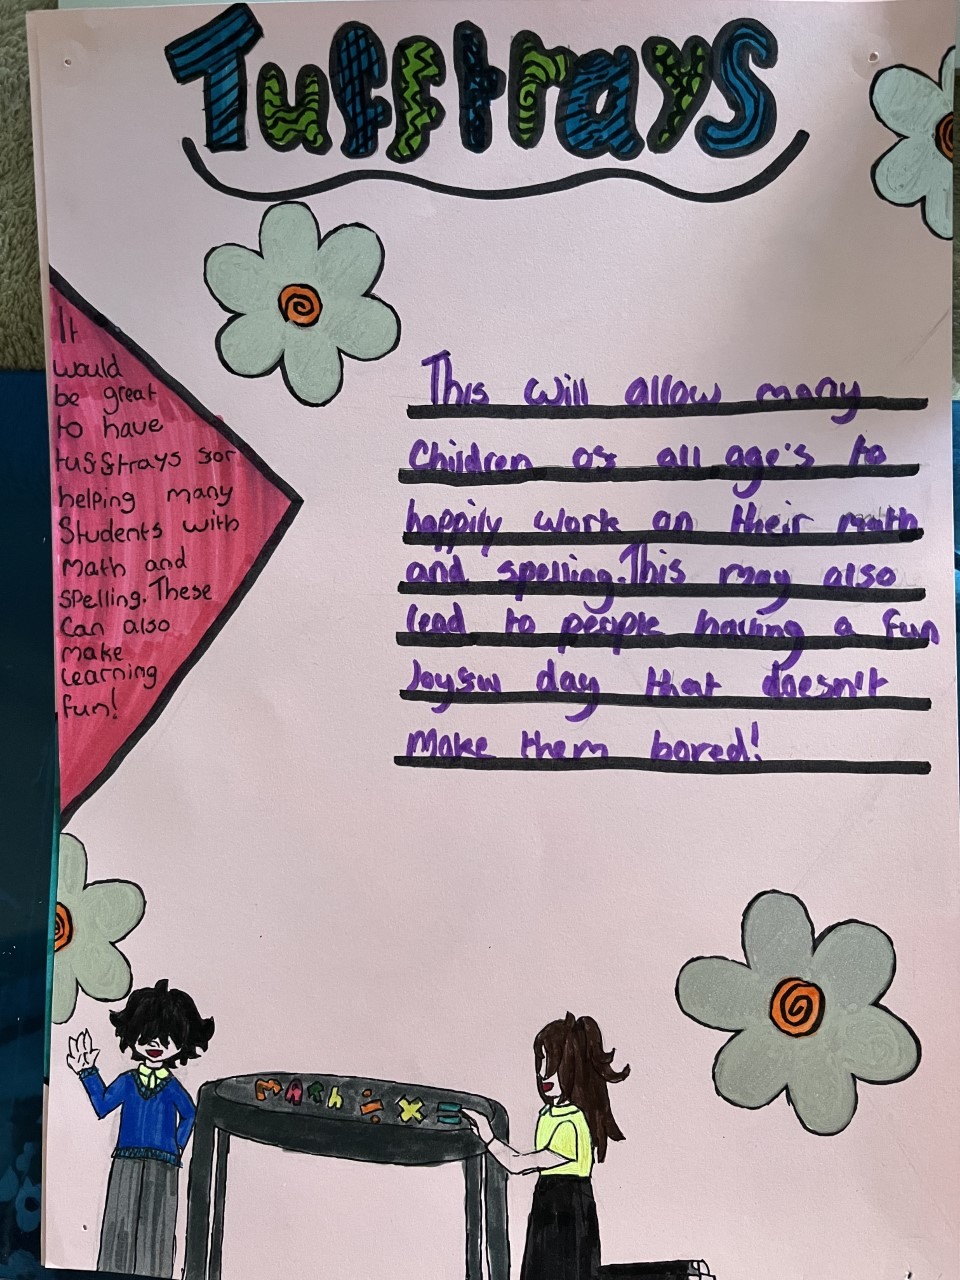 Tufftrays
It
would
be great
to have
tufftrays for
helping many
Students with
math and
spelling. These
can also
make
learning
fun!
This will allow many
Children of all age's to
happily work on their math
and spelling. This may also
lead to people having a fun
Joyful day that doesn't
make them bored!
MATh ÷ × =